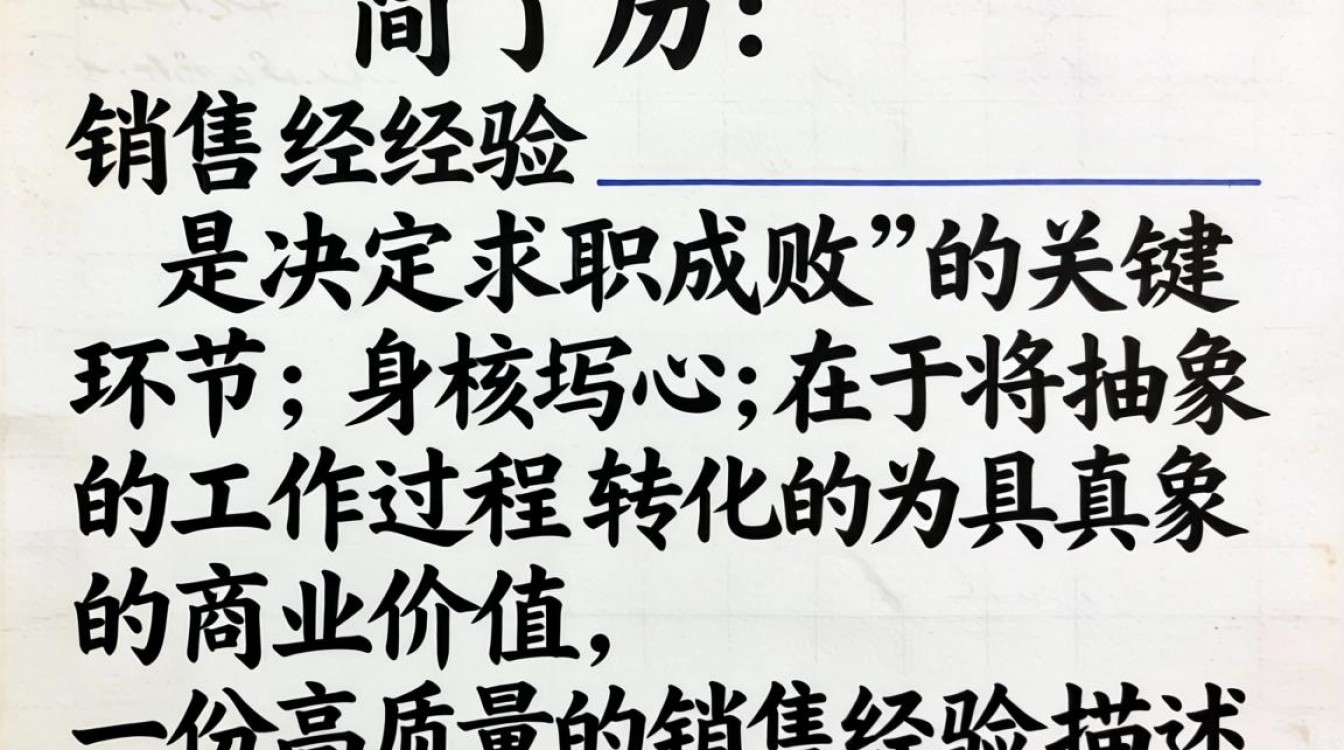 简丁历:
销售经经验
是决定求职成败”的关键
环节; 身核写心; 在于将抽象
的工作过程转化的为具真象
的商业价值,
一份高质量的销售经验描述